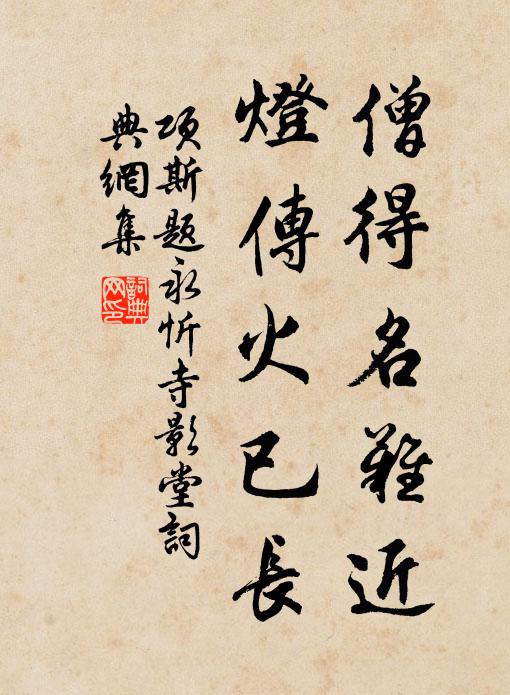 僧得名難近
燈傳火已長
項斯題永忻寺影堂詞
典網集
詞典
网印